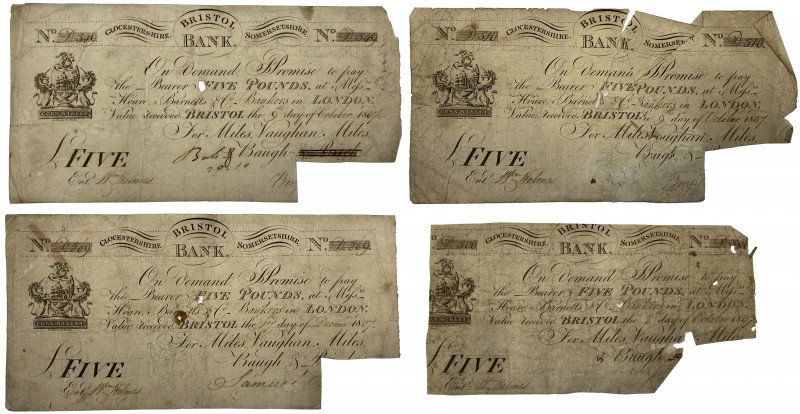 BRISTOL
No. D.549 GLOCESTERSHIRE. BANK. SOMERSETSHIRE. No. D.549
On Demand I Promise to pay
the Bearer FIVE POUNDS, at Messrs.
Hoare, Barnetts & Co. Bankers in LONDON.
Value received BRISTOL the 9 day of October 1807
CORN STREET
For Miles, Vaughan, Miles,
Baugh &
£ FIVE
Entd. Wm Holmes
BRISTOL
No. D.510 GLOCESTERSHIRE. BANK. SOMERSET No. D.510.
On Demand I Promise to pay
the Bearer FIVE POUNDS, at Messrs.
Hoare, Barnetts & Co. Bankers in LONDON.
Value received BRISTOL the 9 day of October 1807
CORN STREET
For Miles, Vaughan, Miles,
Baugh &
£ FIVE
Entd. Wm Holmes
BRISTOL
No. D.809 GLOCESTERSHIRE. BANK. SOMERSETSHIRE. No. D.809
On Demand I Promise to pay
the Bearer FIVE POUNDS, at Messrs.
Hoare, Barnetts & Co. Bankers in LONDON.
Value received BRISTOL the day of 1807
CORN STREET
For Miles, Vaughan, Miles,
Baugh &
£ FIVE Samuel
Entd. Wm Holmes
BRISTOL
D.500 GLOCESTERSHIRE. BANK. SOMERSETSHIRE. No.
On Demand I Promise to pay
the Bearer FIVE POUNDS, at Messrs.
Hoare, Barnetts & Co. Bankers in LONDON.
Value received BRISTOL the day of October 1807
CORN STREET
For Miles, Vaughan, Miles,
Baugh
£ FIVE
Entd. Holmes